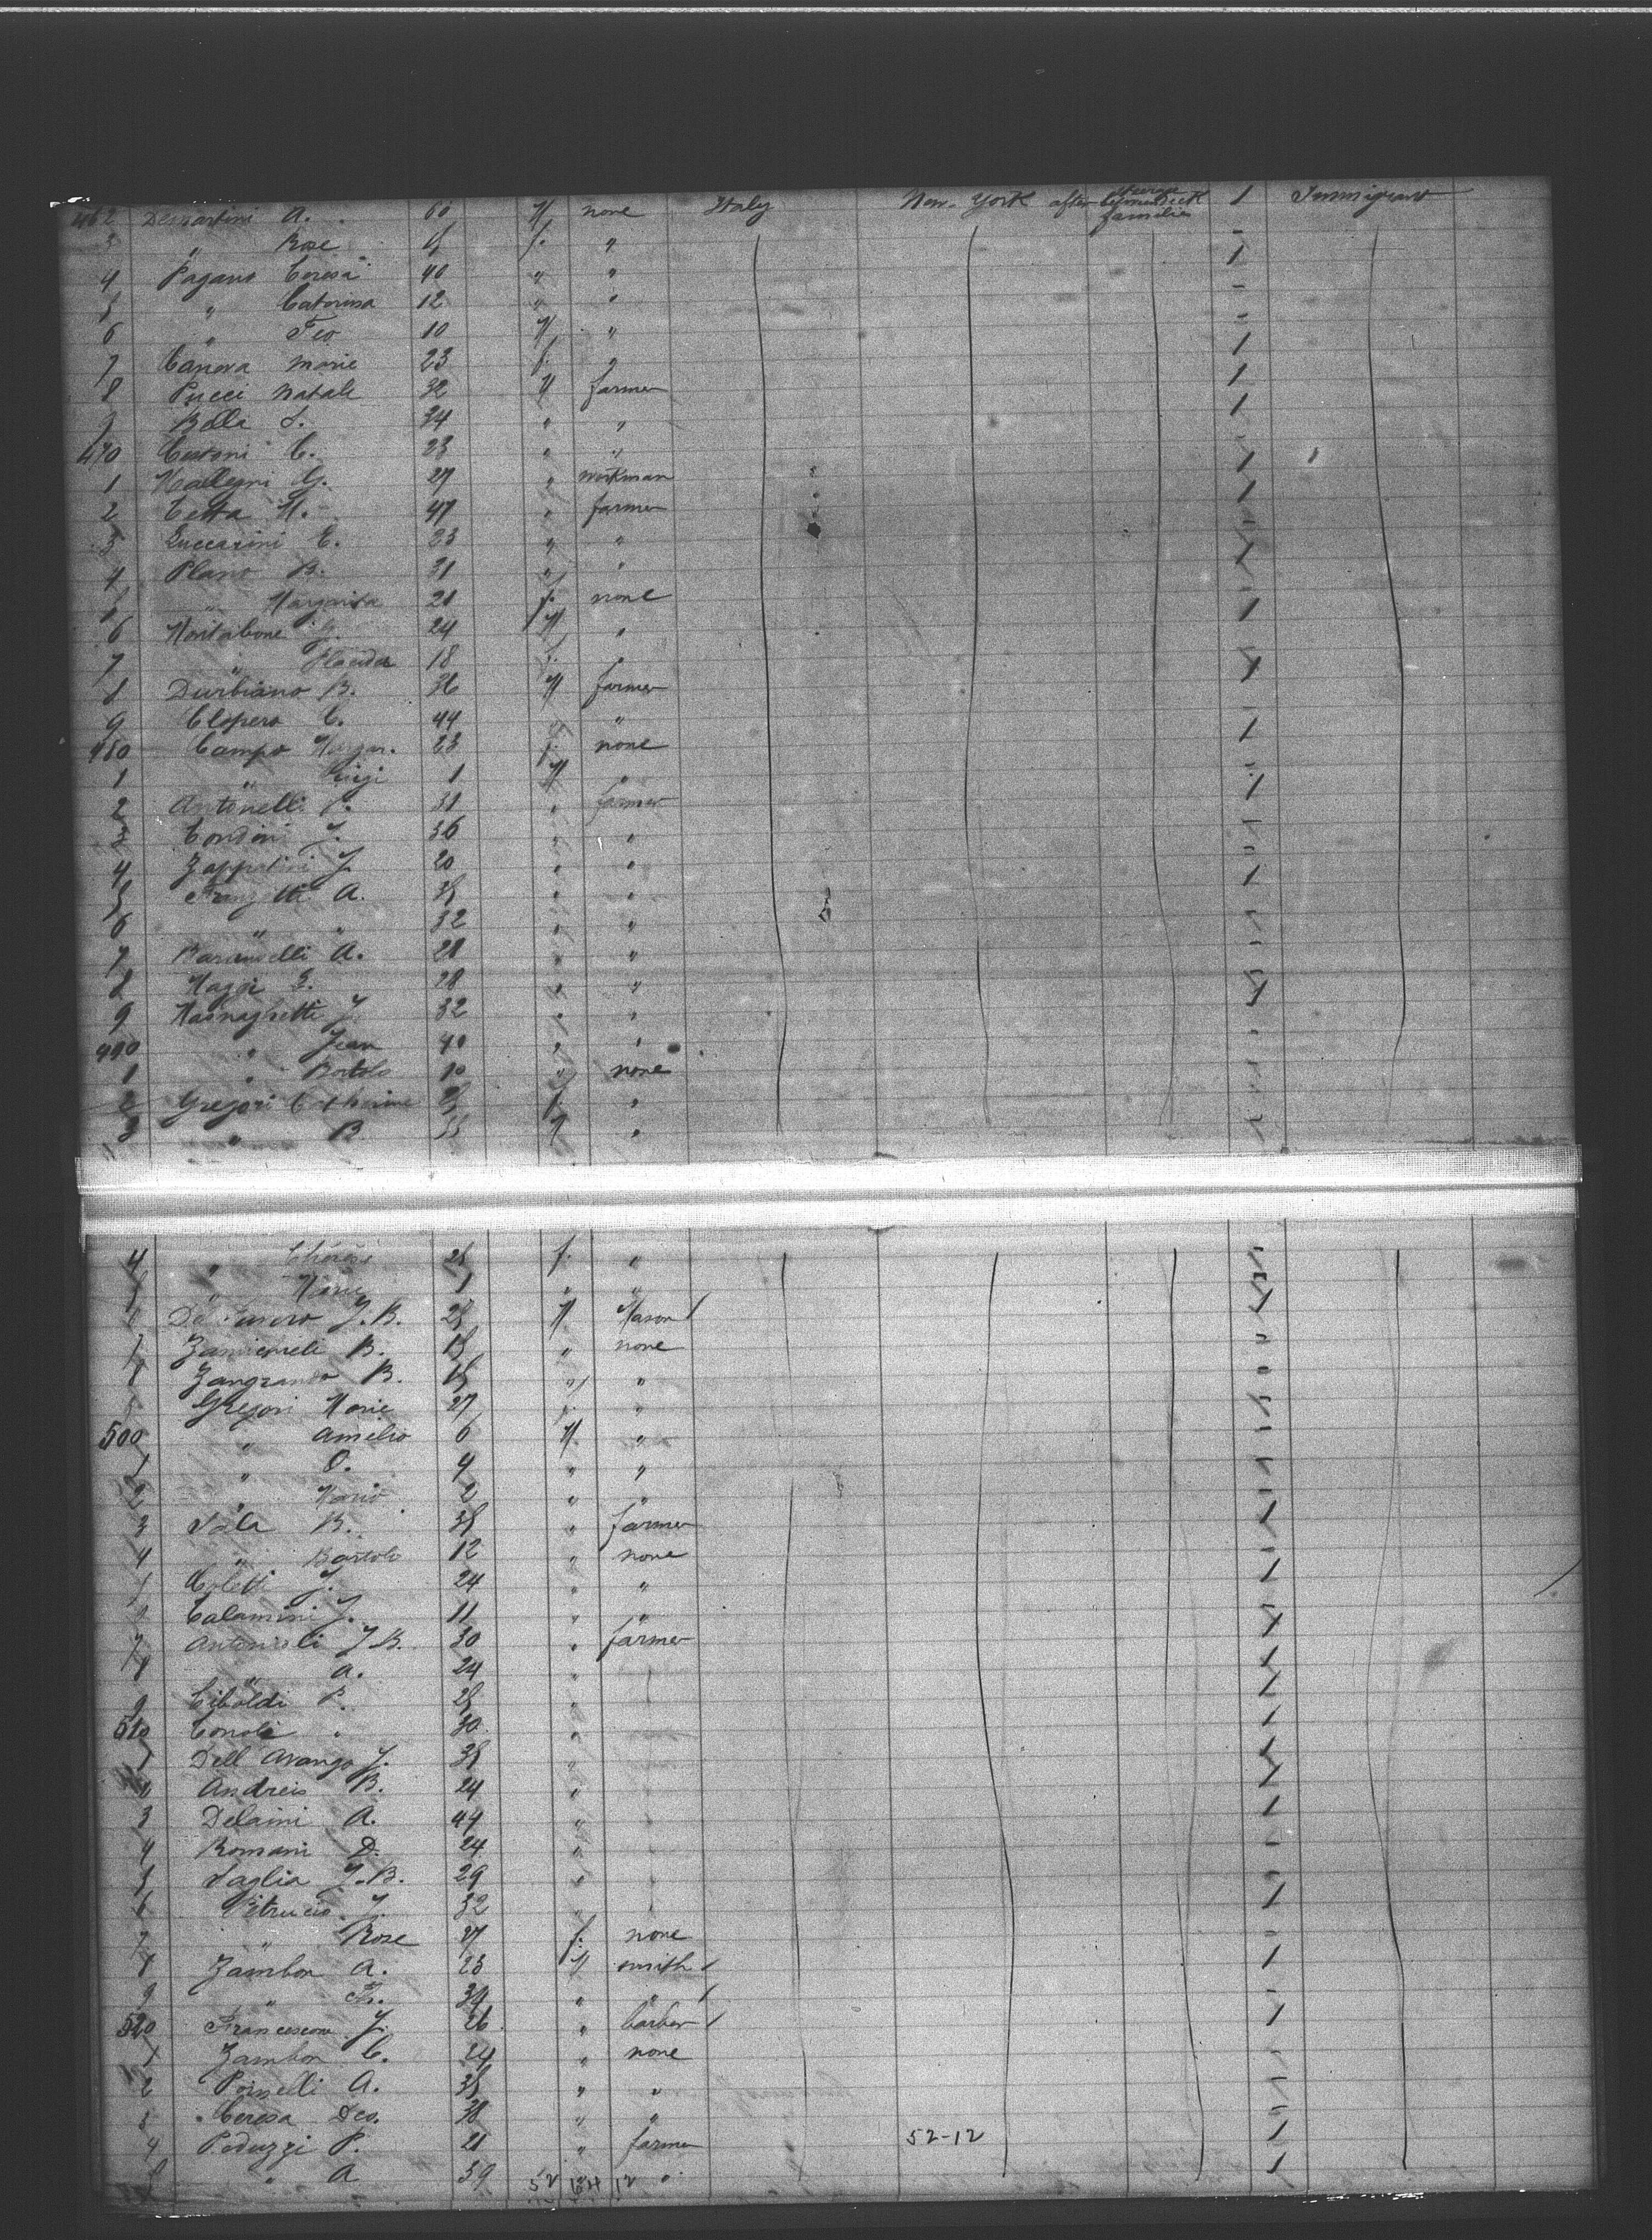 462 Demartini A. 60 M none Italy New-York after families 1 Immigrant
3 " Rose f. "
4 Pagano Ceresa 40 " "
5 " Catorina 12 " "
6 " Feo 10 M "
7 Canova Marie 23 f. "
8 Pucci Natale 32 M farmer
9 Bella S. 34 " "
470 Cestoni C. 23 " "
1 Mallegni G. 27 " workman
2 Cetta M. 47 " farmer
3 Zuccarini E. 23 " "
4 Plano B. 31 " "
5 " Margarita 21 f. none
6 Montabone G. 24 M "
7 " Placida 18 f. "
8 Durbiano B. 36 M farmer
9 Clopero C. 44 " "
480 Campo Margar. 23 f. none
1 " Luigi 1 M "
2 Antonelli P. 31 " farmer
3 Condini J. 36 " "
4 Zappatini J. 20 " "
5 A. 35 " "
6 " " 32 " "
7 A. 28 " "
8 28 " "
9 Masnaghetti J. 32 " "
490 " Jean 40 " "
1 " Bortolo 10 " none
2 Gregori Catherine f. "
3 " B. M "
4 " Thérèse 25 f. "
5 " Marie 1 " "
6 De J. B. 25 M Mason
7 B. 15 " none
8 Zangrando B. 15 " "
Gregori Marie 27 f. "
500 " Amelio 6 M. "
1 " O. 4 " "
2 " Mario 2 " "
3 Sala B. 35 " farmer
4 " Bartolo 12 " none
5 Coletti J. 24 " "
Calamini J. 11 " "
7 Antonioli J. B. 30 " farmer
8 " A. 24 "
9 Ciboldi P. 25 "
510 " 30 "
1 Dell Avango J. 35 "
2 Andreis B. 24 "
3 Delaini A. 44 "
4 Romani D. 24 "
5 Saglia J. B. 29 "
6 Petruccio J. 32 "
7 " Rose 27 f. none
8 Zambon A. 23 M smith
9 " 34 " "
520 Francescon J. 26 " barber
1 Zambon C. 24 " none
2 A. 35 " "
3 Ceresa Deo. 38 " "
4 Peduzzi P. 21 " farmer 52-12
5 " A 39 52 12 "